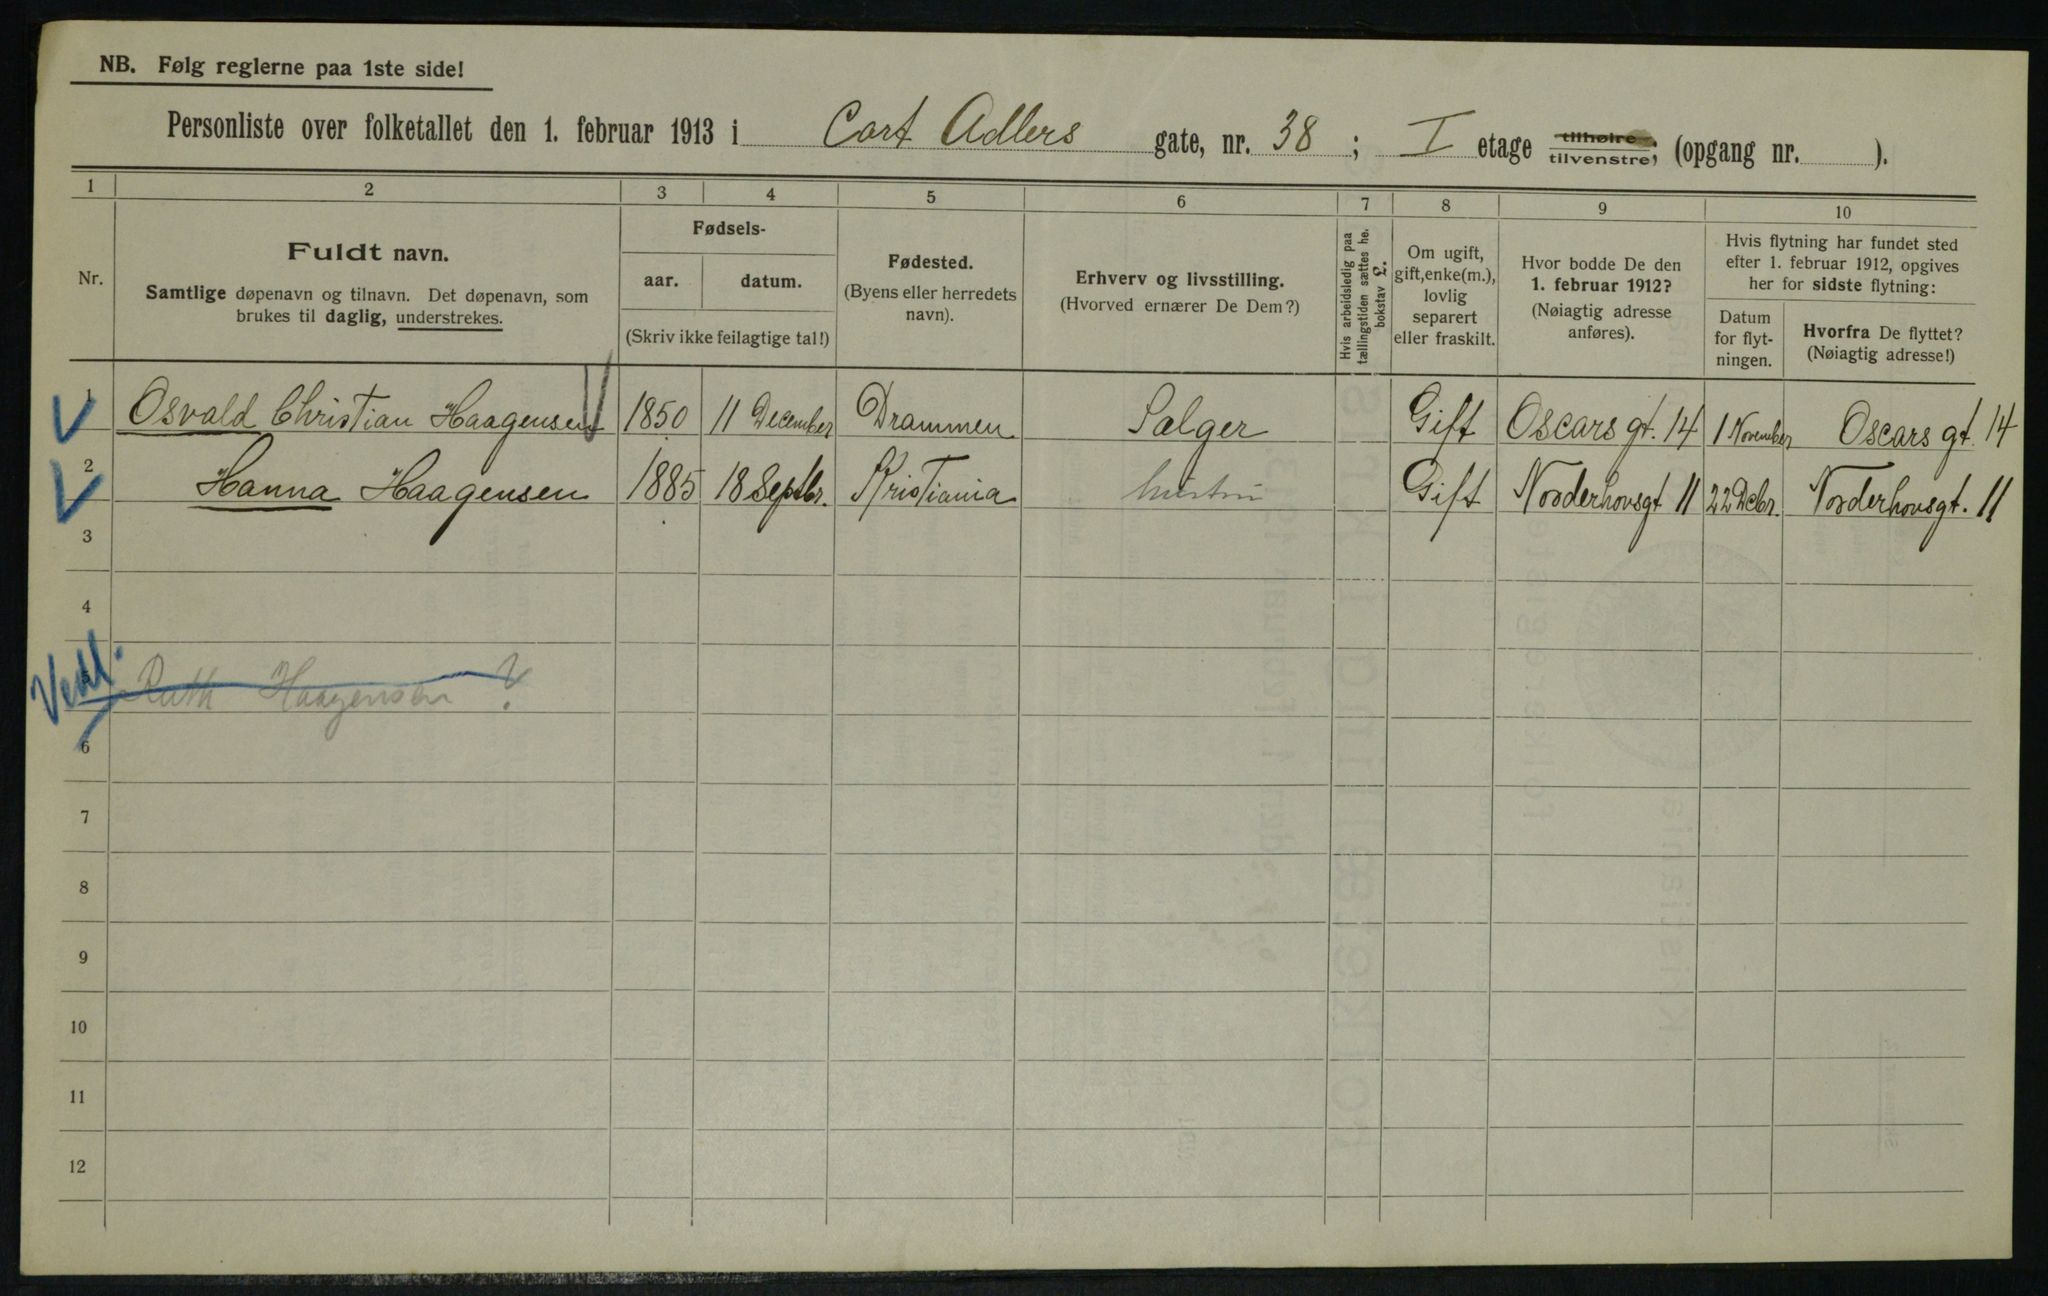 NB. Følg reglerne paa 1ste side!
Personliste over folketallet den 1. februar 1913 i Cort Adlers gate, nr. 38 ; I etage tilhøire, tilvenstre, (opgang nr. ).
1 2 3 4 5 6 7 8 9 10
Nr.
Fuldt navn.
Samtlige døpenavn og tilnavn. Det døpenavn, som
brukes til daglig, understrekes.
Fødsels-
aar. datum.
(Skriv ikke feilagtige tal!)
Fødested.
(Byens eller herredets
navn).
Erhverv og livsstilling.
(Hvorved ernærer De Dem?)
Hvis arbeidsledig paa
tællingstiden sættes he.
bokstav £.
Om ugift,
gift, enke(m.),
lovlig
separert
eller fraskilt.
Hvor bodde De den
1. februar 1912?
(Nøiagtig adresse
anføres).
Hvis flytning har fundet sted
efter 1. februar 1912, opgives
her for sidste flytning:
Datum
for flyt-
ningen.
Hvorfra De flyttet?
(Nøiagtig adresse!)
1 Osvald Christian Haagensen 1850 11 December Drammen Sælger Gift Oscars gt. 14 1 November Oscars gt. 14
2 Hanna Haagensen 1885 18 Septbr. Kristiania hustru Gift Norderhovsgt 11 22 Decbr. Norderhovsgt. 11
3
4
5 Ruth Haagensen ?
6
7
8
9
10
11
12